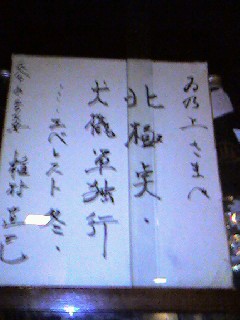 上さまへ
北極点・
犬橇単独行
…エベレスト 冬・
植村直己